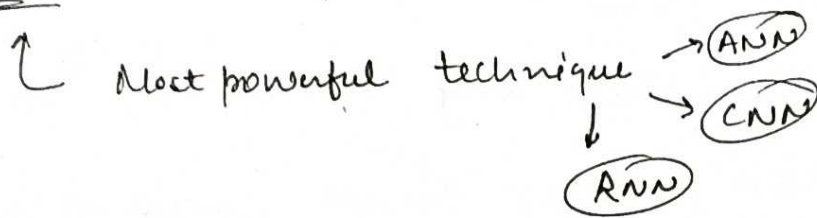 Most powerful technique → ANN
→ CNN
↓
RNN